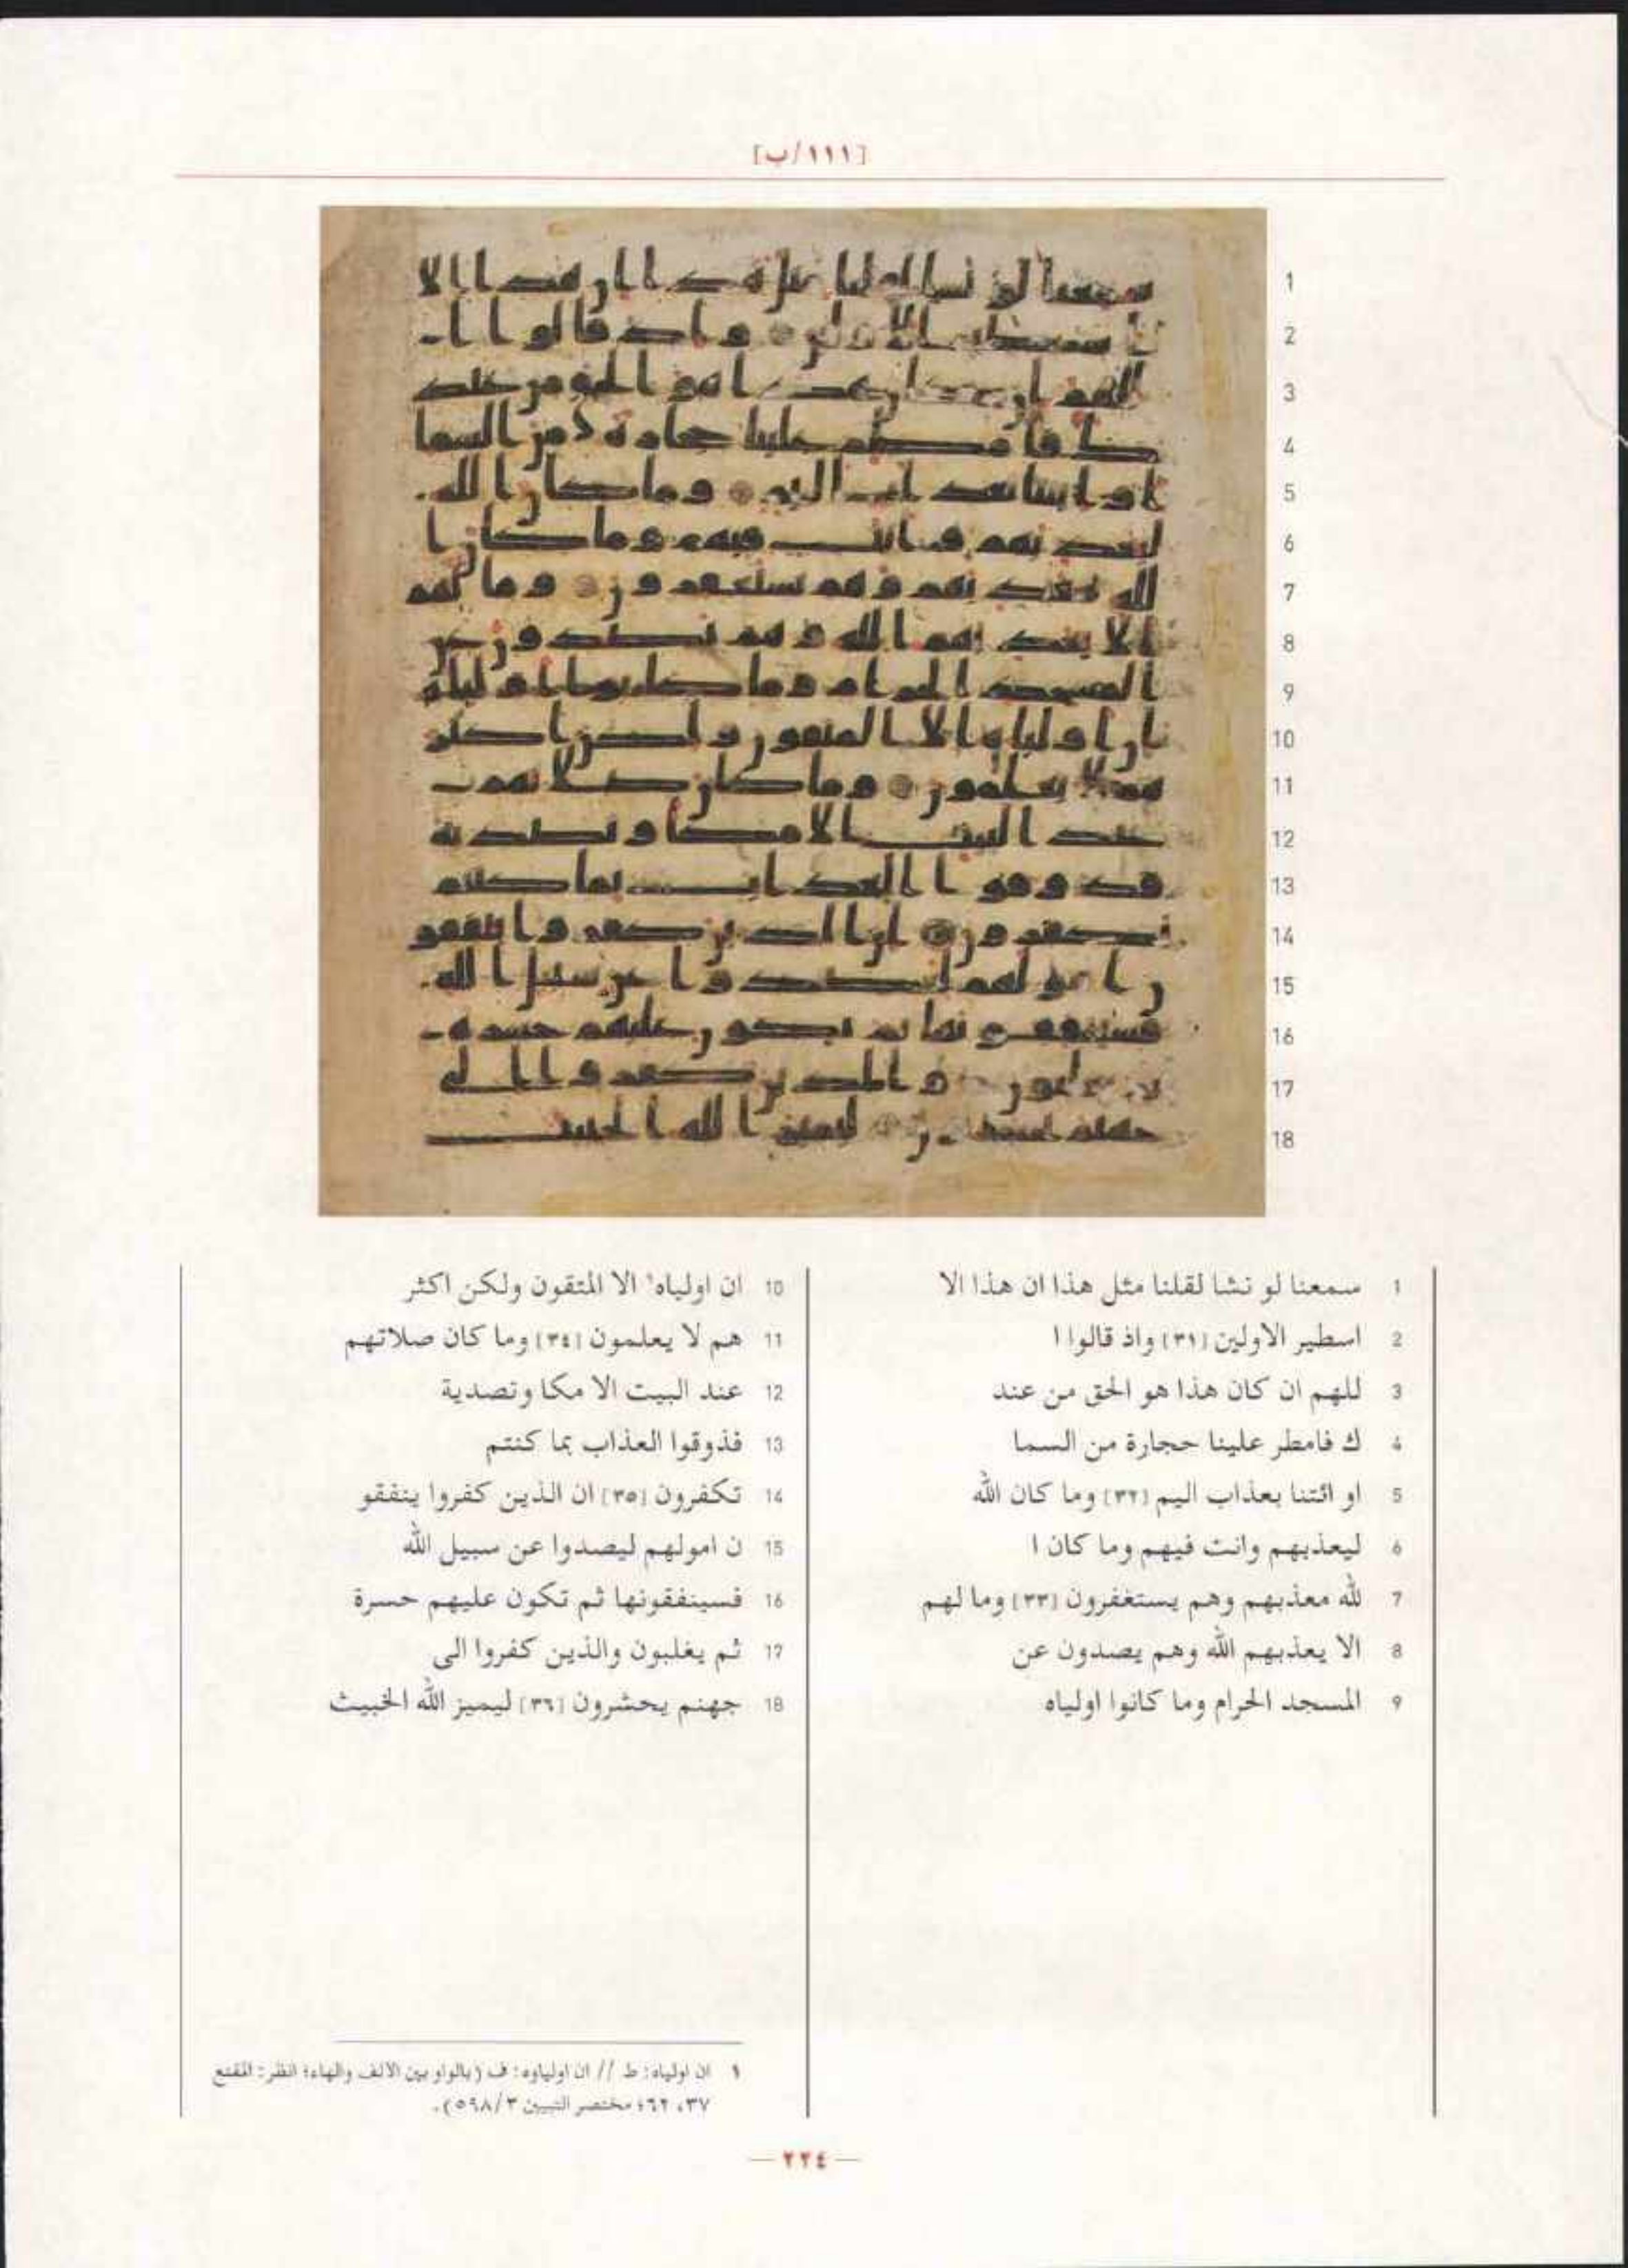 [١١١/ب]
1 سمعنا لو نشا لقلنا مثل هذا ان هذا الا
2 اسطير الاولين [٣١] واذ قالوا ا
3 للهم ان كان هذا هو الحق من عند
4 ك فامطر علينا حجارة من السما
5 او ائتنا بعذاب اليم [٣٢] وما كان الله
6 ليعذبهم وانت فيهم وما كان ا
7 لله معذبهم وهم يستغفرون [٣٣] وما لهم
8 الا يعذبهم الله وهم يصدون عن
9 المسجد الحرام وما كانوا اولياه
10 ان اولياه١ الا المتقون ولكن اكثر
11 هم لا يعلمون [٣٤] وما كان صلاتهم
12 عند البيت الا مكا وتصدية
13 فذوقوا العذاب بما كنتم
14 تكفرون [٣٥] ان الذين كفروا ينفقو
15 ن امولهم ليصدوا عن سبيل الله
16 فسينفقونها ثم تكون عليهم حسرة
17 ثم يغلبون والذين كفروا الى
18 جهنم يحشرون [٣٦] ليميز الله الخبيث
١ ان اولياه: ط // ان اولياوه: ف (بالواو بين الالف والهاء؛ انظر: المقنع
٣٧، ٦٢؛ مختصر التبيين ٥٩٨/٣).
— ٢٢٤ —